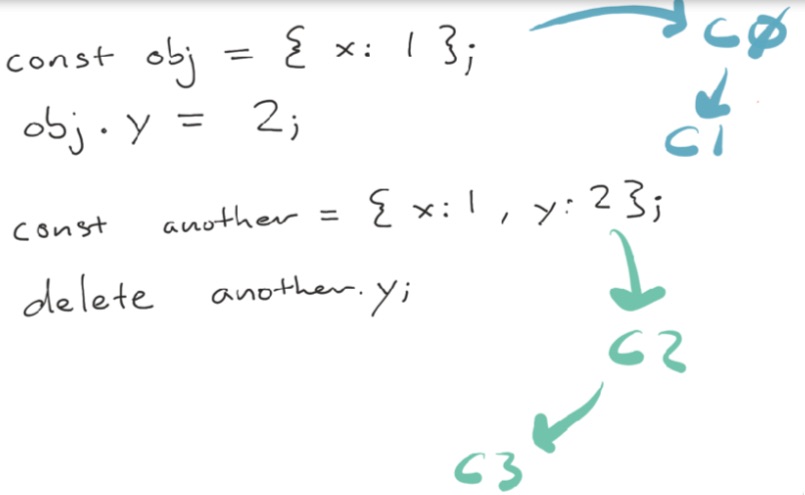 const obj = { x: 1 };
C0
obj.y = 2;
C1
const another = { x: 1, y: 2 };
delete another.y;
C2
C3